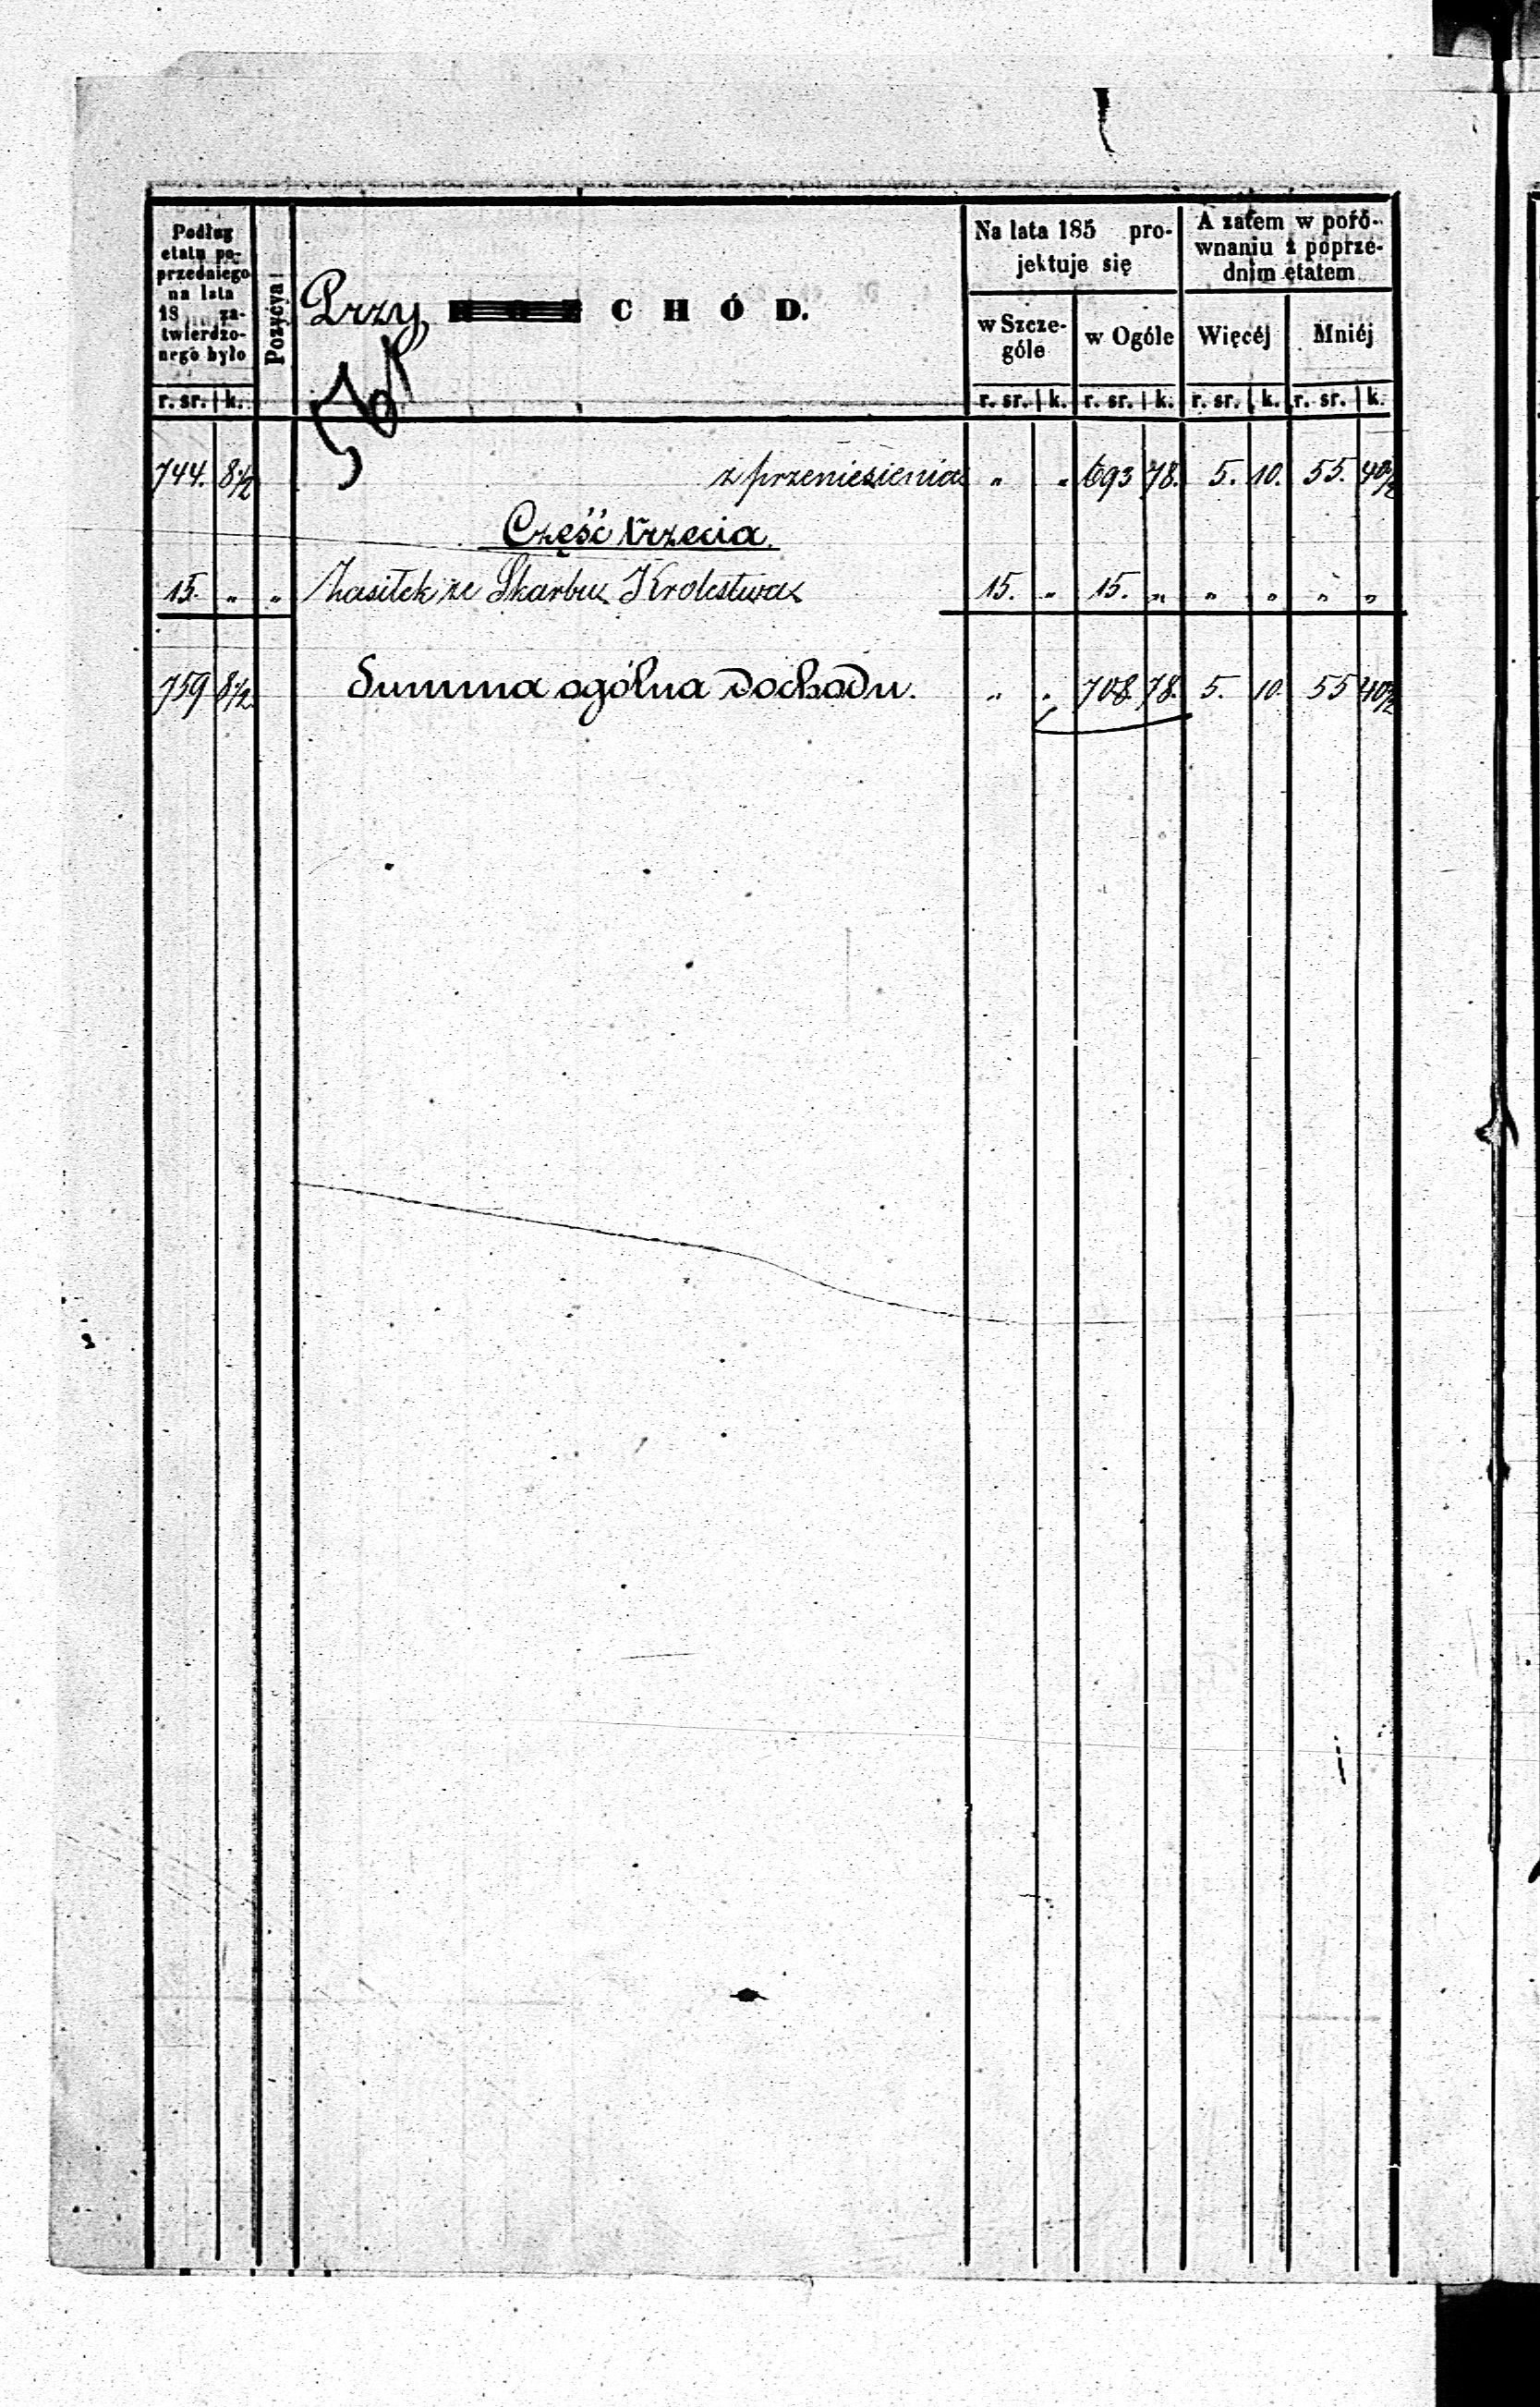 Podług etatu poprzedniego na lata 18 zatwierdzonego było
Pozycya
Przy CHÓD.
Na lata 185 projektuje się
A zatem w porównaniu z poprzednim etatem
w Szczególe
w Ogóle
Więcéj
Mniéj
r. sr. k. r. sr. k. r. sr. k. r. sr. k. r. sr. k.
744. 8½ z przeniesienia „ „ 693 78. 5. 10. 55. 40½
Część trzecia.
15. „ „ Zasiłek ze Skarbu Krolestwa 15. „ 15. „ „ „ „ „
759 8½ Summa ogólna dochodu. „ „ 708. 78. 5. 10. 55 40½